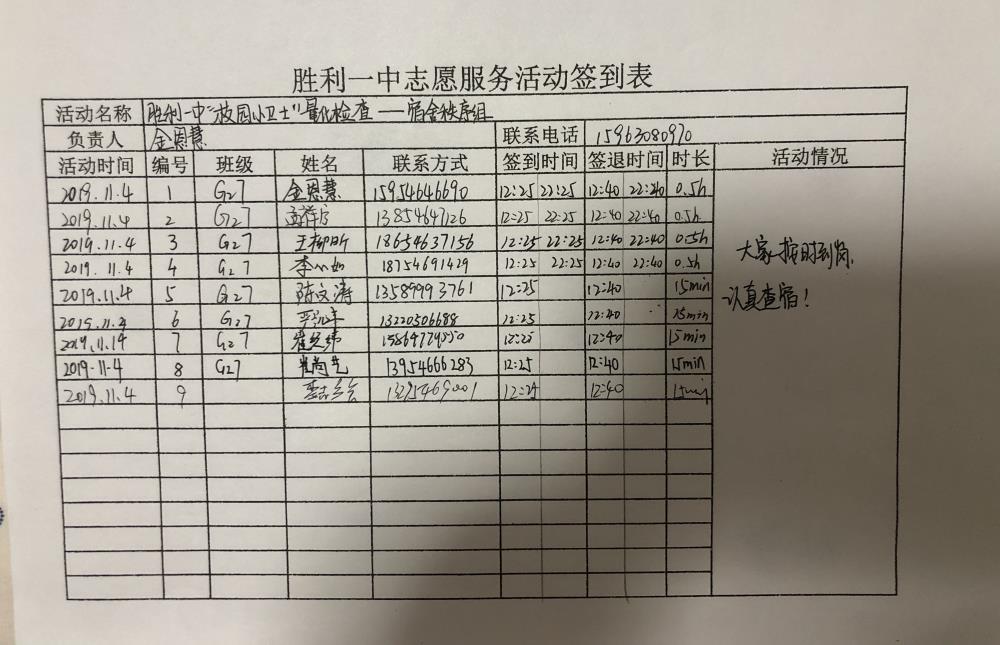 胜利一中志愿服务活动签到表
活动名称 胜利一中"校园小卫士"量化检查——宿舍秩序组
负责人 金恩慧 联系电话 15963080970
活动时间 编号 班级 姓名 联系方式 签到时间 签退时间 时长 活动情况
2019.11.4 1 G27 金恩慧 15954646690 12:25 22:25 12:40 22:40 0.5h
2019.11.4 2 G27 13854647126 12:25 22:25 12:40 22:40 0.5h
2019.11.4 3 G27 王柳昕 18654637156 12:25 22:25 12:40 22:40 0.5h
2019.11.4 4 G27 李心如 18754691429 12:25 22:25 12:40 22:40 0.5h
大家按时到岗,
2019.11.4 5 G27 陈文涛 13589993761 12:25 12:40 15min
认真查宿!
6 G27 13220506688 12:25 12:40 15min
2019.11.14 7 G27 12:25 12:40 15min
2019.11.4 8 G27 肖尚艺 13954666283 12:25 12:40 15min
2019.11.4 9 12:25 12:40 15min